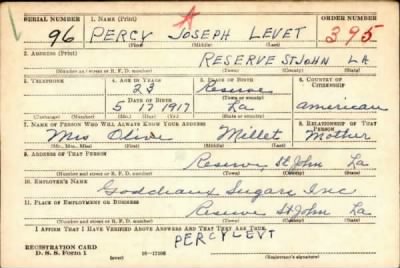 SERIAL NUMBER 1. NAME (Print) ORDER NUMBER
96 PERCY JOSEPH LEVET 395
(First) (Middle) (Last)
2. ADDRESS (Print)
RESERVE ST JOHN LA
(Number and street or R. F. D. number) (Town) (County) (State)
3. TELEPHONE 4. AGE IN YEARS 5. PLACE OF BIRTH 6. COUNTRY OF CITIZENSHIP
23 Reserve
DATE OF BIRTH (Town or county)
5 17 1917 La american
(Exchange) (Number) (Mo.) (Day) (Yr.) (State or country)
7. NAME OF PERSON WHO WILL ALWAYS KNOW YOUR ADDRESS 8. RELATIONSHIP OF THAT PERSON
Mrs Olivia Millet Mother
(Mr., Mrs., Miss) (First) (Middle) (Last)
9. ADDRESS OF THAT PERSON
Reserve, St. John La
(Number and street or R. F. D. number) (Town) (County) (State)
10. EMPLOYER'S NAME
Godchaux Sugars Inc
11. PLACE OF EMPLOYMENT OR BUSINESS
Reserve St John La
(Number and street or R. F. D. number) (Town) (County) (State)
I AFFIRM THAT I HAVE VERIFIED ABOVE ANSWERS AND THAT THEY ARE TRUE.
PERCY LEVT
REGISTRATION CARD
D. S. S. Form 1 (over) (Registrant's signature)